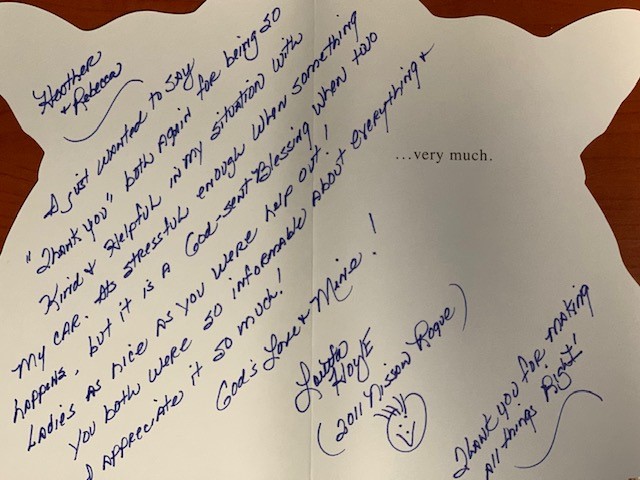 Heather
& Rebecca
I just wanted to say
"Thank you" both again for being so
Kind & Helpful in my situation with
my CAR. It's stressful enough when something
happens, but it is a God-sent Blessing when two
Ladies as nice as you were help out!
You both were so informable about everything &
I appreciate it so much!
God's Love & Mine!
HOYLE
(2011 Nissan Rogue)
...very much.
Thank you for making
all things Right!